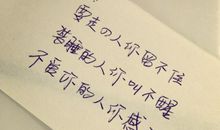 要走の人你留不住
装睡的人你叫不醒
不爱你的人你感